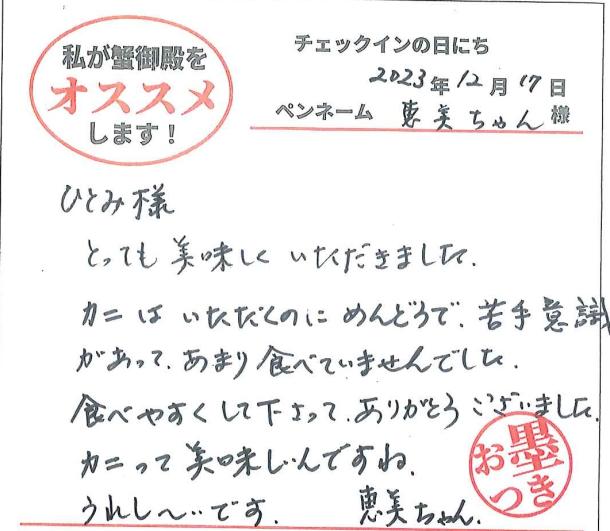 私が蟹御殿を
オススメ
します！
チェックインの日にち
2023年12月17日
ペンネーム 恵美ちゃん様
ひとみ様
とっても美味しくいただきました。
カニはいただくのにめんどうで、苦手意識
があって、あまり食べていませんでした。
食べやすくして下さって、ありがとうございました。
カニって美味しいんですね。
うれし〜いです。 恵美ちゃん.
お墨
つき